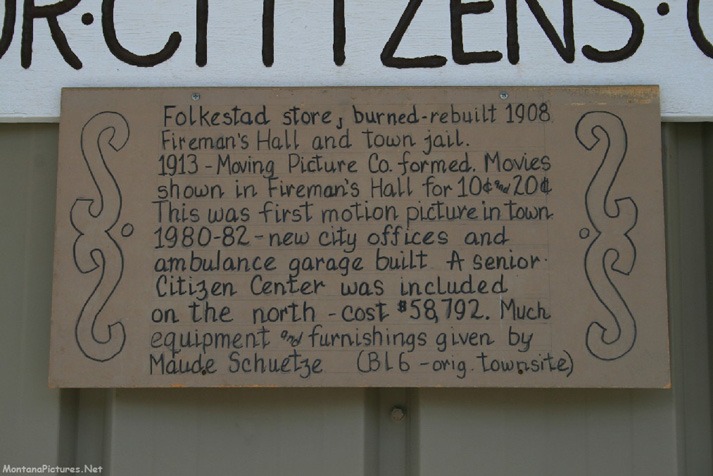 R·CITIZENS·C
Folkestad store, burned-rebuilt 1908
Fireman's Hall and town jail.
1913 - Moving Picture Co. formed. Movies
shown in Fireman's Hall for 10¢ and 20¢
This was first motion picture in town
1980-82 - new city offices and
ambulance garage built A senior
Citizen Center was included
on the north - cost $58,792. Much
equipment and furnishings given by
Maude Schuetze (BL6 - orig. townsite)
MontanaPictures.Net